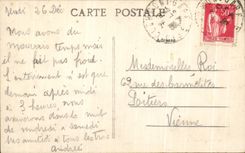 Jeudi 26 Déc
CARTE POSTALE
Nous avons du
mauvais temps mais il
ne fait pas froid.
L'enterrement n'est que
demain après midi
à 3 heures, nous
arriverons dans la nuit
de vendredi à samedi
amitiés à tous les trois
Andrée
Mesdemoiselles Roi
rue des
Poitiers
Vienne